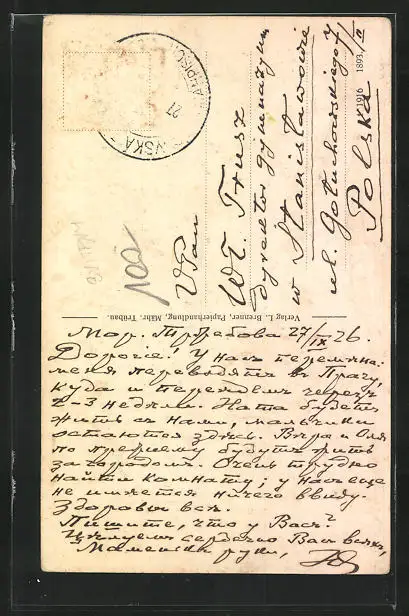 Мор. Тржебова 27/IX 26.
Дорогіе! У насъ перемѣна:
меня переводятъ въ Прагу,
куда и переѣдемъ черезъ
2-3 недѣли. Ната будетъ
жить съ нами, мальчики
остаются здѣсь. Вѣра и Оля
по прежнему будутъ жить
за городомъ. Очень трудно
найти комнату; у насъ еще
не имѣется ничего ввиду.
Здоровы всѣ.
Пишите, что у Васъ?
Цѣлуемъ сердечно Васъ всѣхъ,
руки,
Verlag L. Brenner, Papierhandlung, Mähr. Trübau.
1916 1893
WPan
Wł. Trusz
Dyrektor gymnazyum
w Stanisławowie
ul. Gołuchowskiego
Polska
100
27